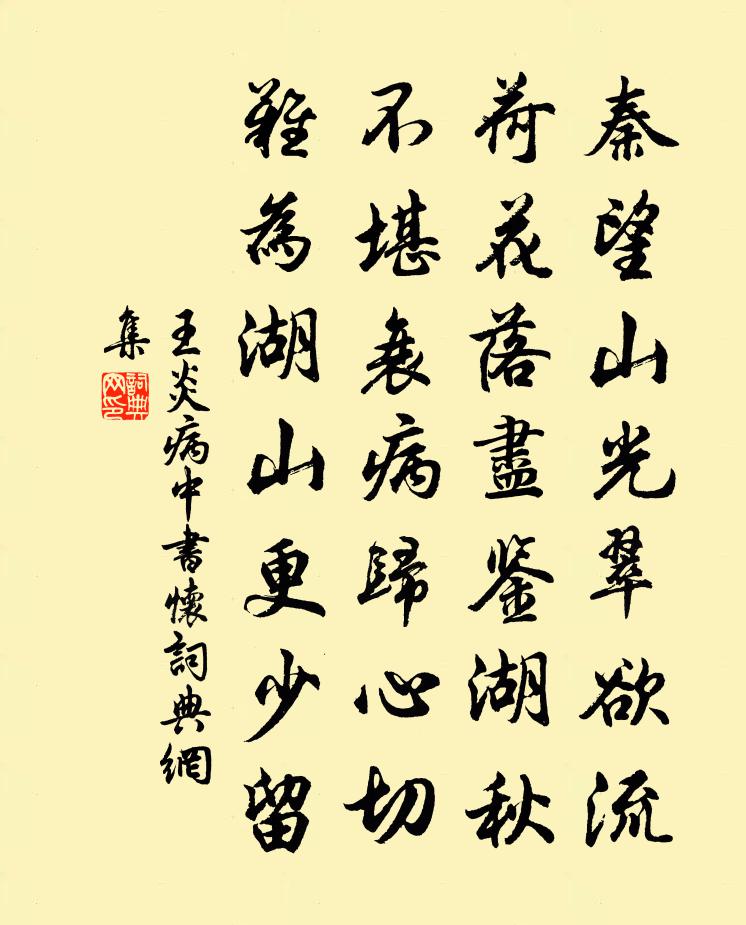 秦望山光翠欲流
荷花落盡鉴湖秋
不堪衰病歸心切
難為湖山更少留
王炎病中書懷詞典網
集
詞典网印